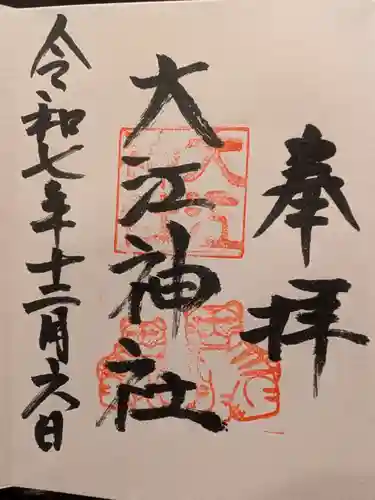 奉拝
大江神社
令和七年十二月六日